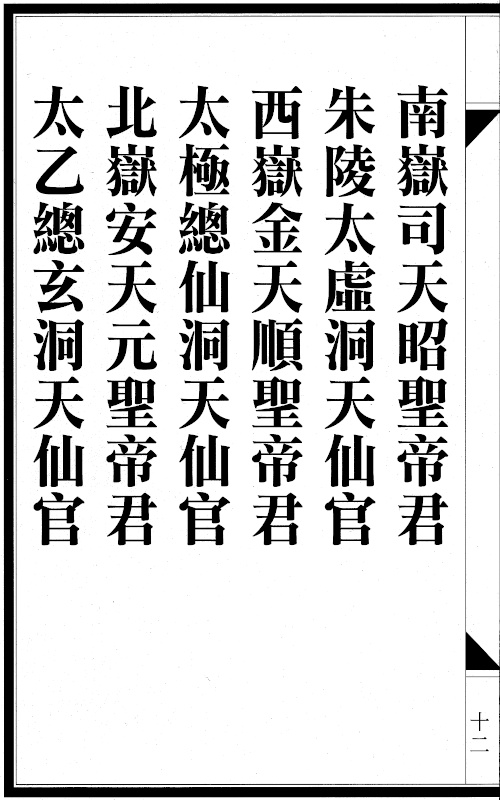 南嶽司天昭聖帝君
朱陵太虛洞天仙官
西嶽金天順聖帝君
太極總仙洞天仙官
北嶽安天元聖帝君
太乙總玄洞天仙官
十二